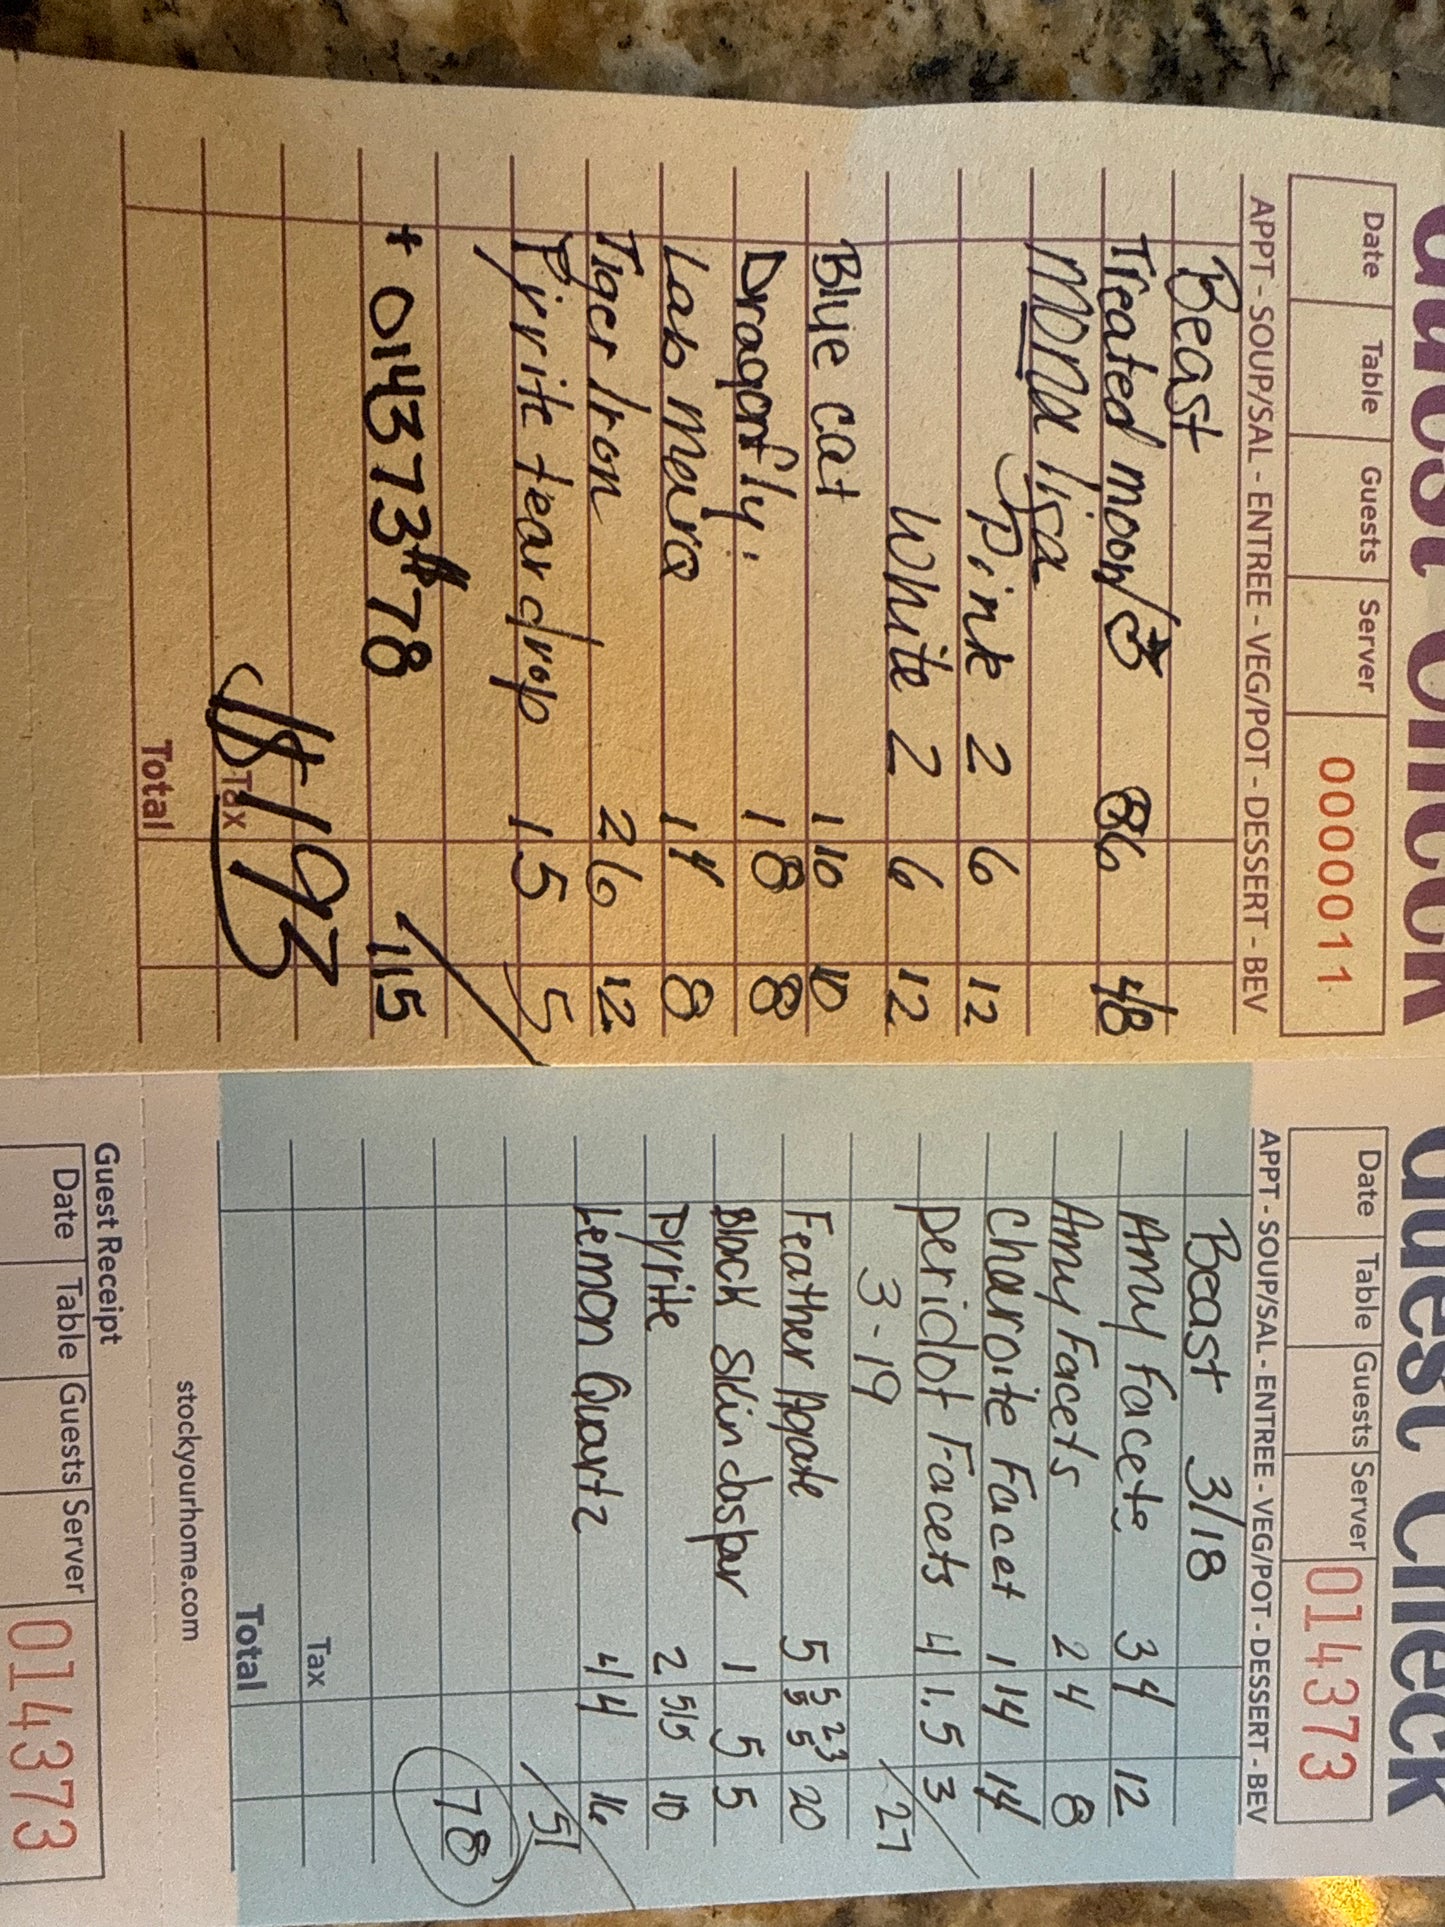 Guest Check
Date Table Guests Server 0000011
APPT - SOUP/SAL - ENTREE - VEG/POT - DESSERT - BEV
Beast
Treated moon/ 8 6 48
Mona lisa
Pink 2 6 12
White 2 6 12
Blue cat 1 10 10
Dragonfly 1 8 8
Lab 1 8
Tiger Iron 2 6 12
Pyrite teardrop 1 5 5
+ 014373 $78 115
$193
Tax
Total
Guest Check
Date Table Guests Server 014373
APPT - SOUP/SAL - ENTREE - VEG/POT - DESSERT - BEV
Beast 3/18
Amy Facets 3 4 12
Amy Facets 2 4 8
Charoite Facet 1 14 14
peridot Facets 4 1.5 3
3-19 /27
Feather Agate 5 5 5 2 3 5 20
Black Skin Jasper 1 5 5
Pyrite 2 5/5 10
Lemon Quartz 4 4 16
/51
78
Tax
Total
stockyourhome.com
Guest Receipt
Date Table Guests Server 014373